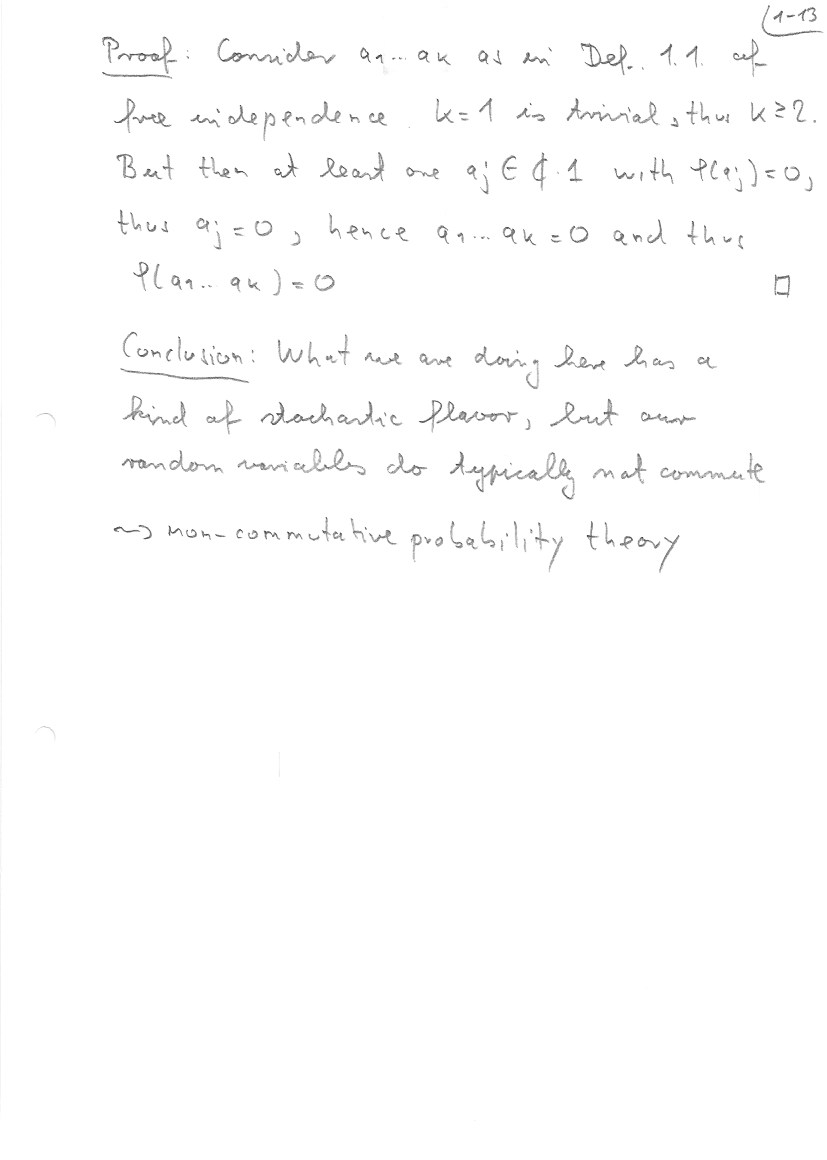 1-13
Proof: Consider a₁... aₖ as in Def. 1.1. of
free independence. k=1 is trivial, thus k≥2.
But then at least one aⱼ ∈ ℂ·1 with φ(aⱼ)=0,
thus aⱼ=0, hence a₁... aₖ=0 and thus
φ(a₁... aₖ)=0 □
Conclusion: What we are doing here has a
kind of stochastic flavor, but our
random variables do typically not commute
⇝ non-commutative probability theory